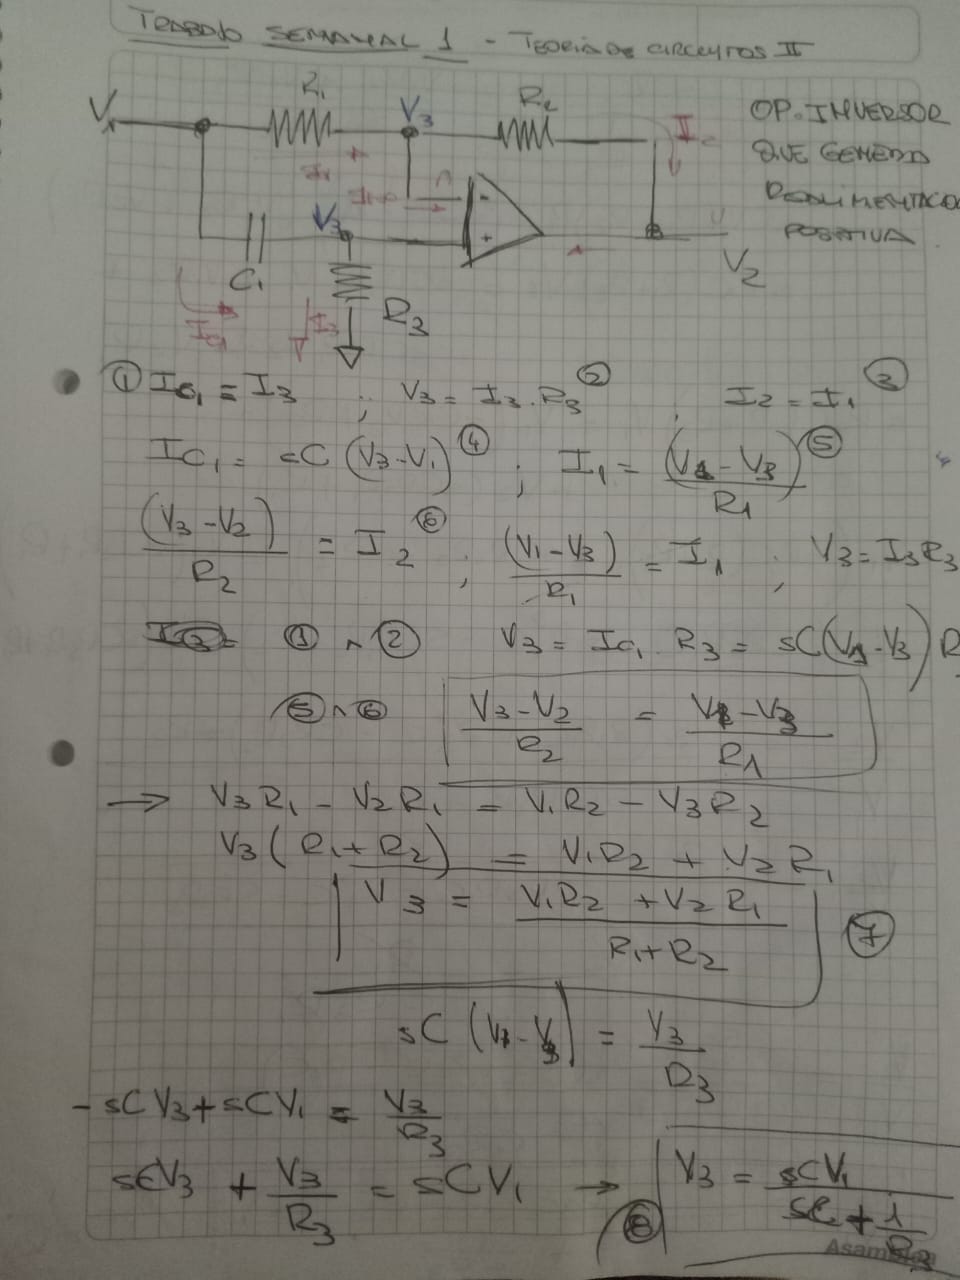 TRABAJO SEMANAL 1 - TEORIA DE CIRCUITOS II
R₁
R₂
V₁
V₃
OP. INVERSOR
QUE GENERA
REALIMENTACIO
POSITIVA
I₁
I
-
+
V₃
V₂
C₁
R₃
IC₁
I₃
① IC₁ = I₃ ; V₃ = I₃ . R₃ ② ; I₂ = I₁ ③
IC₁ = sC (V₃ - V₁) ④ ; I₁ = (V₁ - V₃) / R₁ ⑤
(V₃ - V₂) / R₂ = I₂ ⑥ ; (V₁ - V₃) / R₁ = I₁ ; V₃ = I₃ R₃
① ∧ ② V₃ = IC₁ . R₃ = sC (V₁ - V₃) R
⑤ ∧ ⑥ (V₃ - V₂) / R₂ = (V₁ - V₃) / R₁
→ V₃ R₁ - V₂ R₁ = V₁ R₂ - V₃ R₂
V₃ ( R₁ + R₂ ) = V₁ R₂ + V₂ R₁
V₃ = (V₁ R₂ + V₂ R₁) / (R₁ + R₂) ⑦
sC (V₁ - V₃) = V₃ / R₃
- sC V₃ + sC V₁ = V₃ / R₃
sC V₃ + V₃ / R₃ = sC V₁ → ⑧ V₃ = sC V₁ / (sC + 1 / R₃)